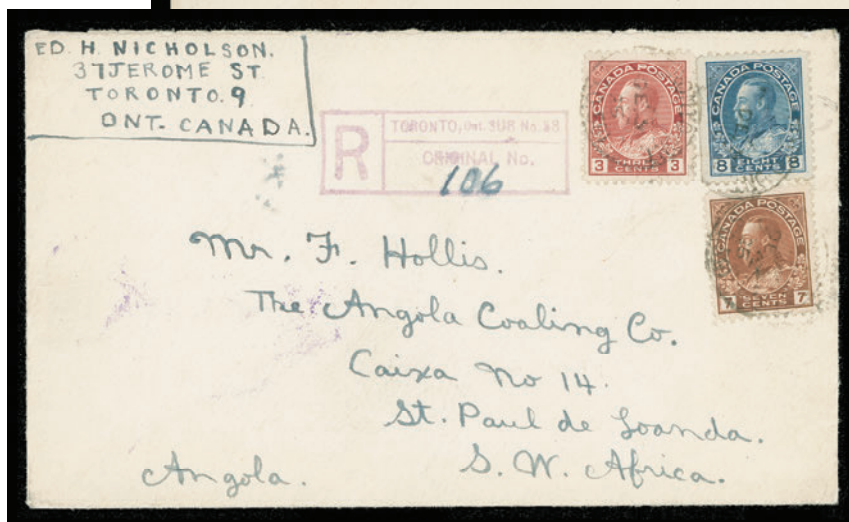 ED. H. NICHOLSON.
37 JEROME ST.
TORONTO. 9
ONT- CANADA.
R
TORONTO, Ont. SUB No. 58
ORIGINAL No.
106
CANADA POSTAGE
3 THREE CENTS 3
CANADA POSTAGE
8 EIGHT CENTS 8
CANADA POSTAGE
7 SEVEN CENTS 7
Mr. F. Hollis.
The Angola Coaling Co.
Caixa No 14.
St. Paul de Loanda.
Angola. S. W. Africa.